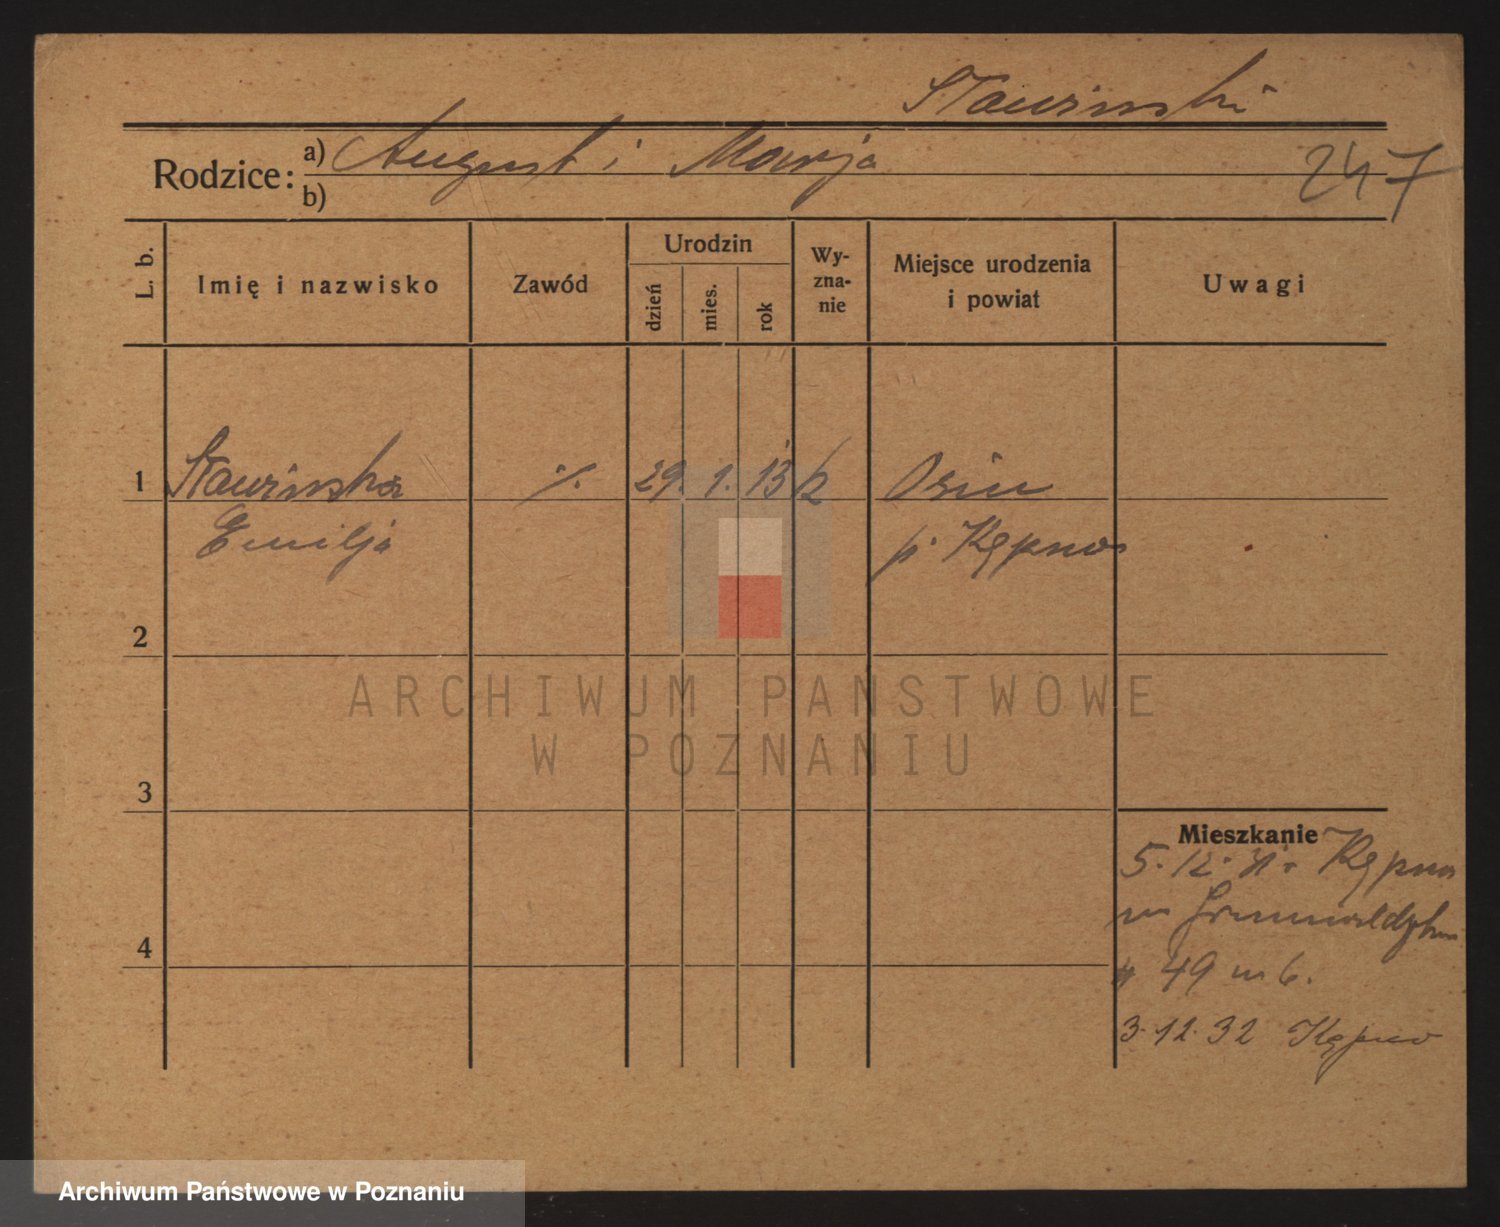 Sławiński
Rodzice: a) August i Marja
b)
247
L. b.
Imię i nazwisko
Zawód
Urodzin
dzień
mies.
rok
Wy-
zna-
nie
Miejsce urodzenia
i powiat
Uwagi
1 Sławińska ./. 29. 1. 13 k Osiu
Emilja p. Kępno
2
ARCHIWUM PAŃSTWOWE
W POZNANIU
3
Mieszkanie
5.12. Kępno
4
49 m 6.
3.12.32 Kępno
Archiwum Państwowe w Poznaniu